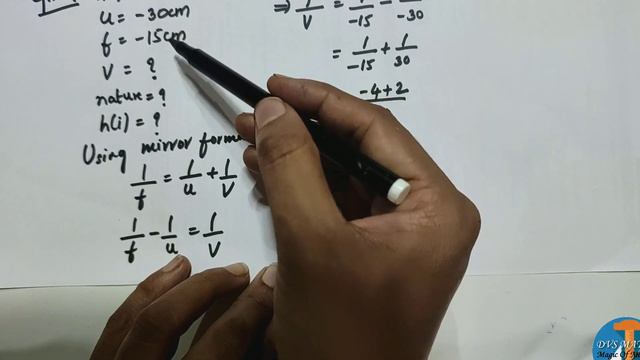 u = -30cm
f = -15cm
v = ?
nature = ?
h(i) = ?
Using mirror
1/f = 1/u + 1/v
1/f - 1/u = 1/v
⇒ 1/v = 1/-15 - 1/-30
= 1/-15 + 1/30
-4+2
DVS MA